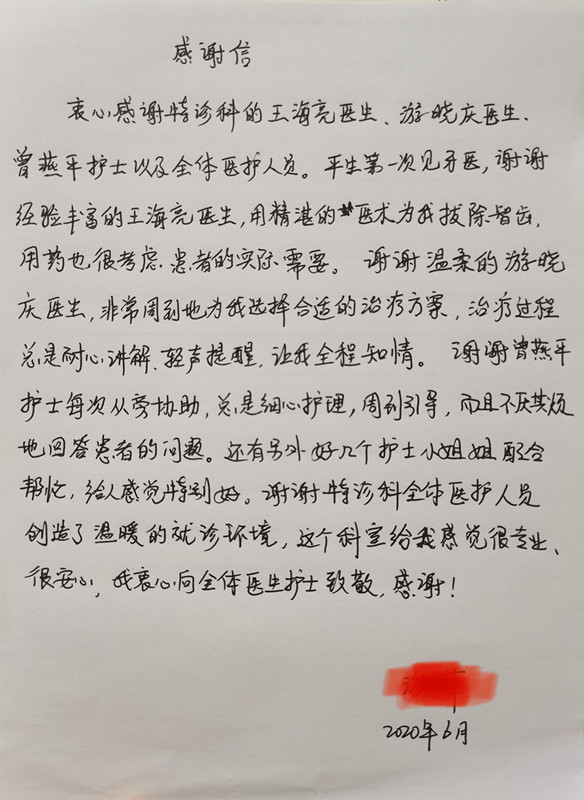 感谢信
衷心感谢特诊科的王海亮医生、游晓庆医生、
曾燕平护士以及全体医护人员。平生第一次见牙医,谢谢
经验丰富的王海亮医生,用精湛的医术为我拔除智齿,
用药也很考虑患者的实际需要。谢谢温柔的游晓
庆医生,非常周到地为我选择合适的治疗方案,治疗过程
总是耐心讲解、轻声提醒,让我全程知情。谢谢曾燕平
护士每次从旁协助,总是细心护理,周到引导,而且不厌其烦
地回答患者的问题。还有另外好几个护士小姐姐配合
帮忙,给人感觉特别好。谢谢特诊科全体医护人员
创造了温暖的就诊环境,这个科室给我感觉很专业、
很安心,我衷心向全体医生护士致敬,感谢!
2020年6月